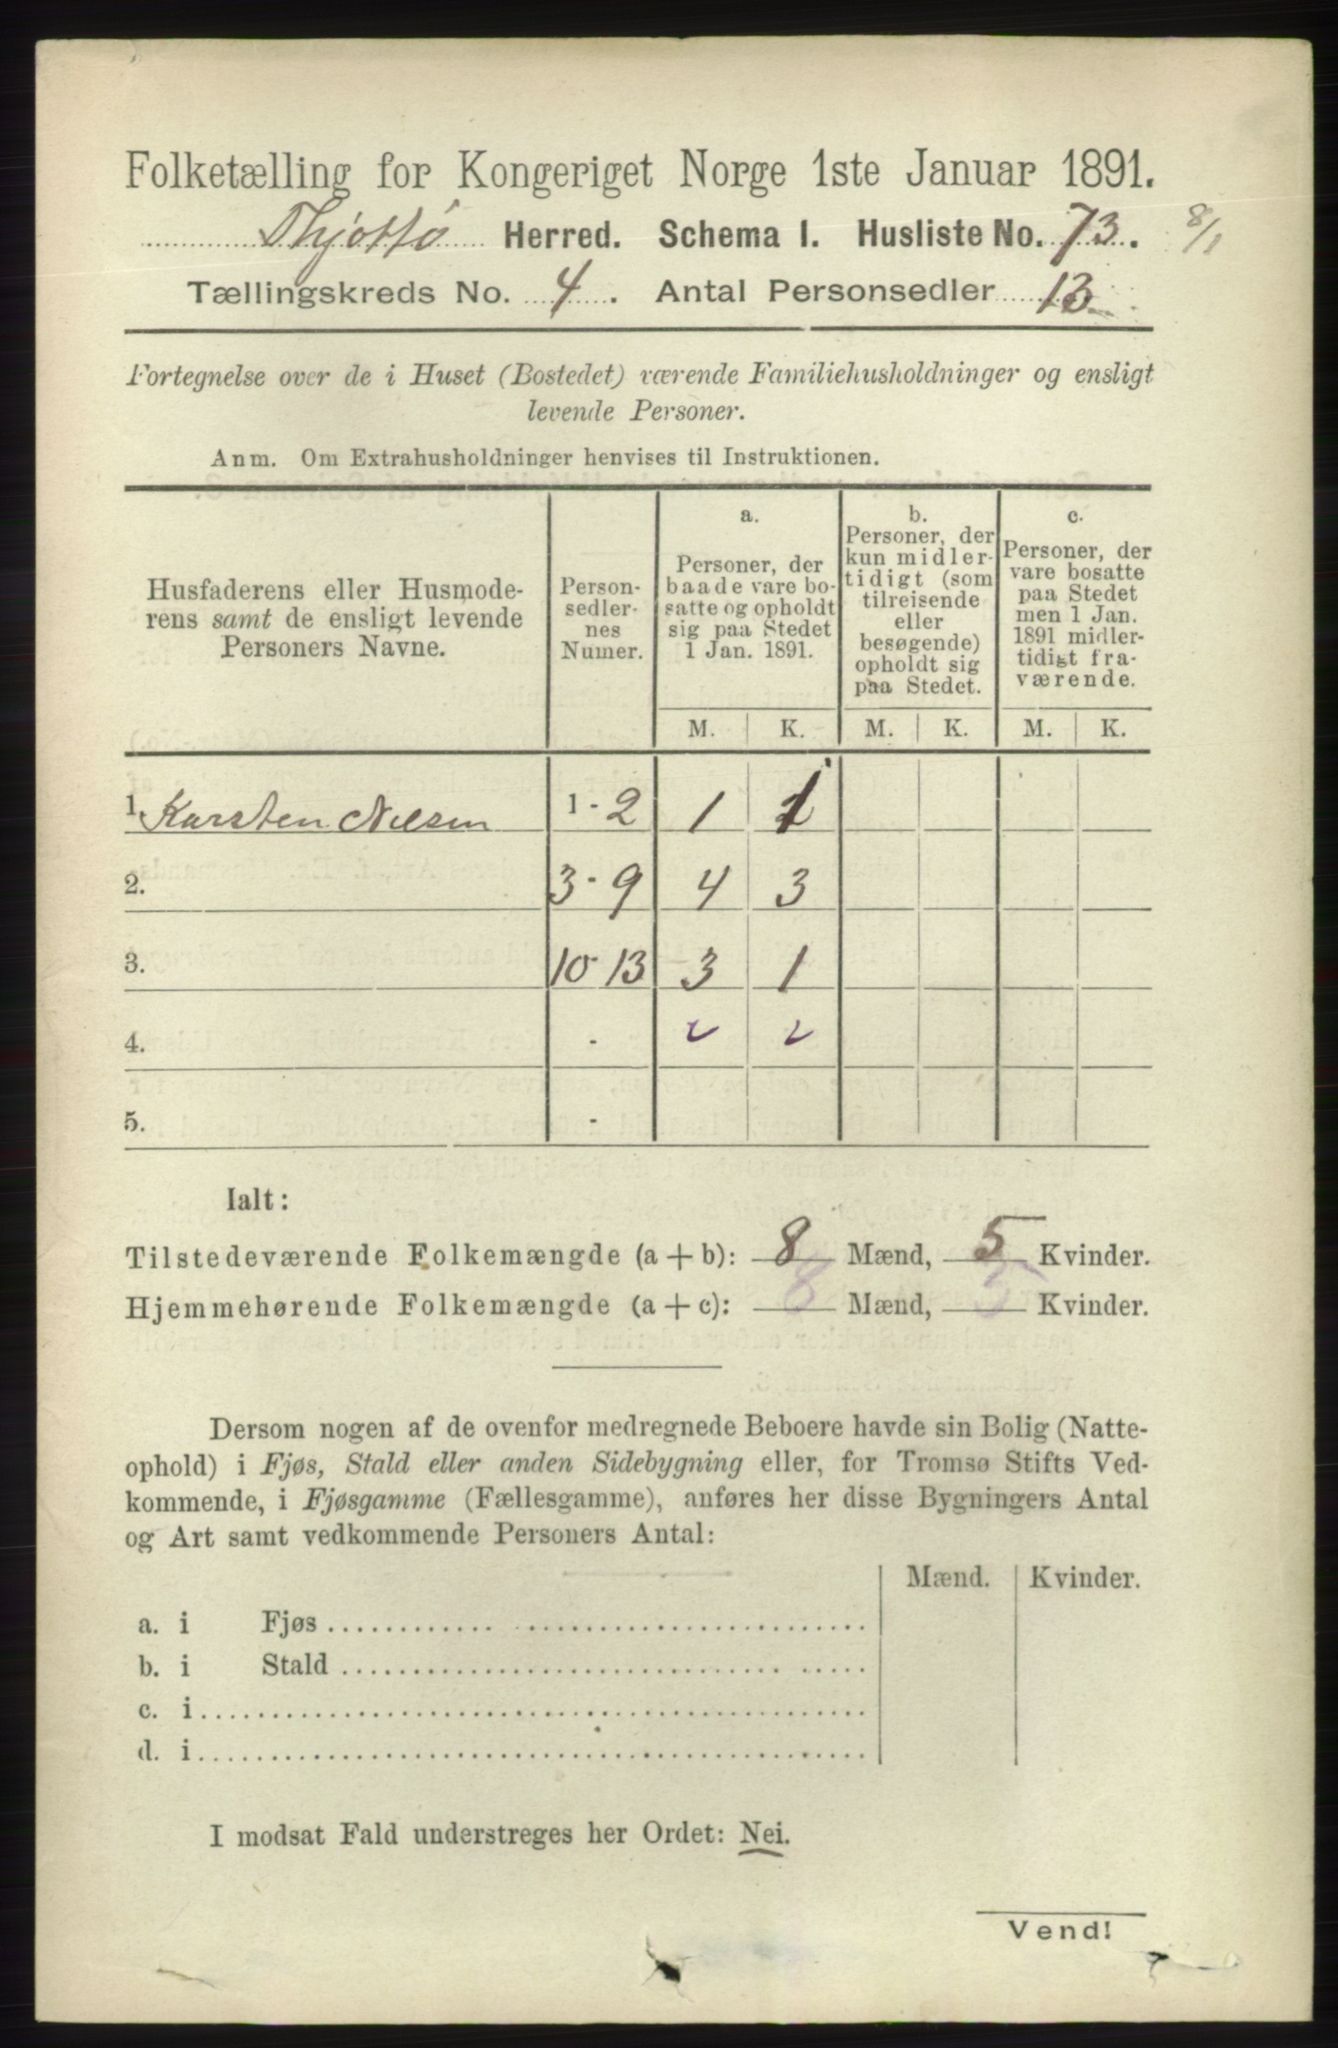 Folketælling for Kongeriget Norge 1ste Januar 1891.
Thjøttø Herred. Schema I. Husliste No. 73. 8/1
Tællingskreds No. 4. Antal Personsedler 13
Fortegnelse over de i Huset (Bostedet) værende Familiehusholdninger og ensligt
levende Personer.
Anm. Om Extrahusholdninger henvises til Instruktionen.
Husfaderens eller Husmode-
rens samt de ensligt levende
Personers Navne.
Person-
sedler-
nes
Numer.
a.
Personer, der
baade vare bo-
satte og opholdt
sig paa Stedet
1 Jan. 1891.
b.
Personer, der
kun midler-
tidigt (som
tilreisende
eller
besøgende)
opholdt sig
paa Stedet.
c.
Personer, der
vare bosatte
paa Stedet
men 1 Jan.
1891 midler-
tidigt fra-
værende.
M. K. M. K. M. K.
1. Karsten Nilsen 1 - 2 1 1
2. 3 - 9 4 3
3. 10 - 13 3 1
4. -
5. -
Ialt:
Tilstedeværende Folkemængde (a + b): 8 Mænd, 5 Kvinder.
Hjemmehørende Folkemængde (a + c): 8 Mænd, 5 Kvinder.
Dersom nogen af de ovenfor medregnede Beboere havde sin Bolig (Natte-
ophold) i Fjøs, Stald eller anden Sidebygning eller, for Tromsø Stifts Ved-
kommende, i Fjøsgamme (Fællesgamme), anføres her disse Bygningers Antal
og Art samt vedkommende Personers Antal:
Mænd. Kvinder.
a. i Fjøs
b. i Stald
c. i
d. i
I modsat Fald understreges her Ordet: Nei.
Vend!